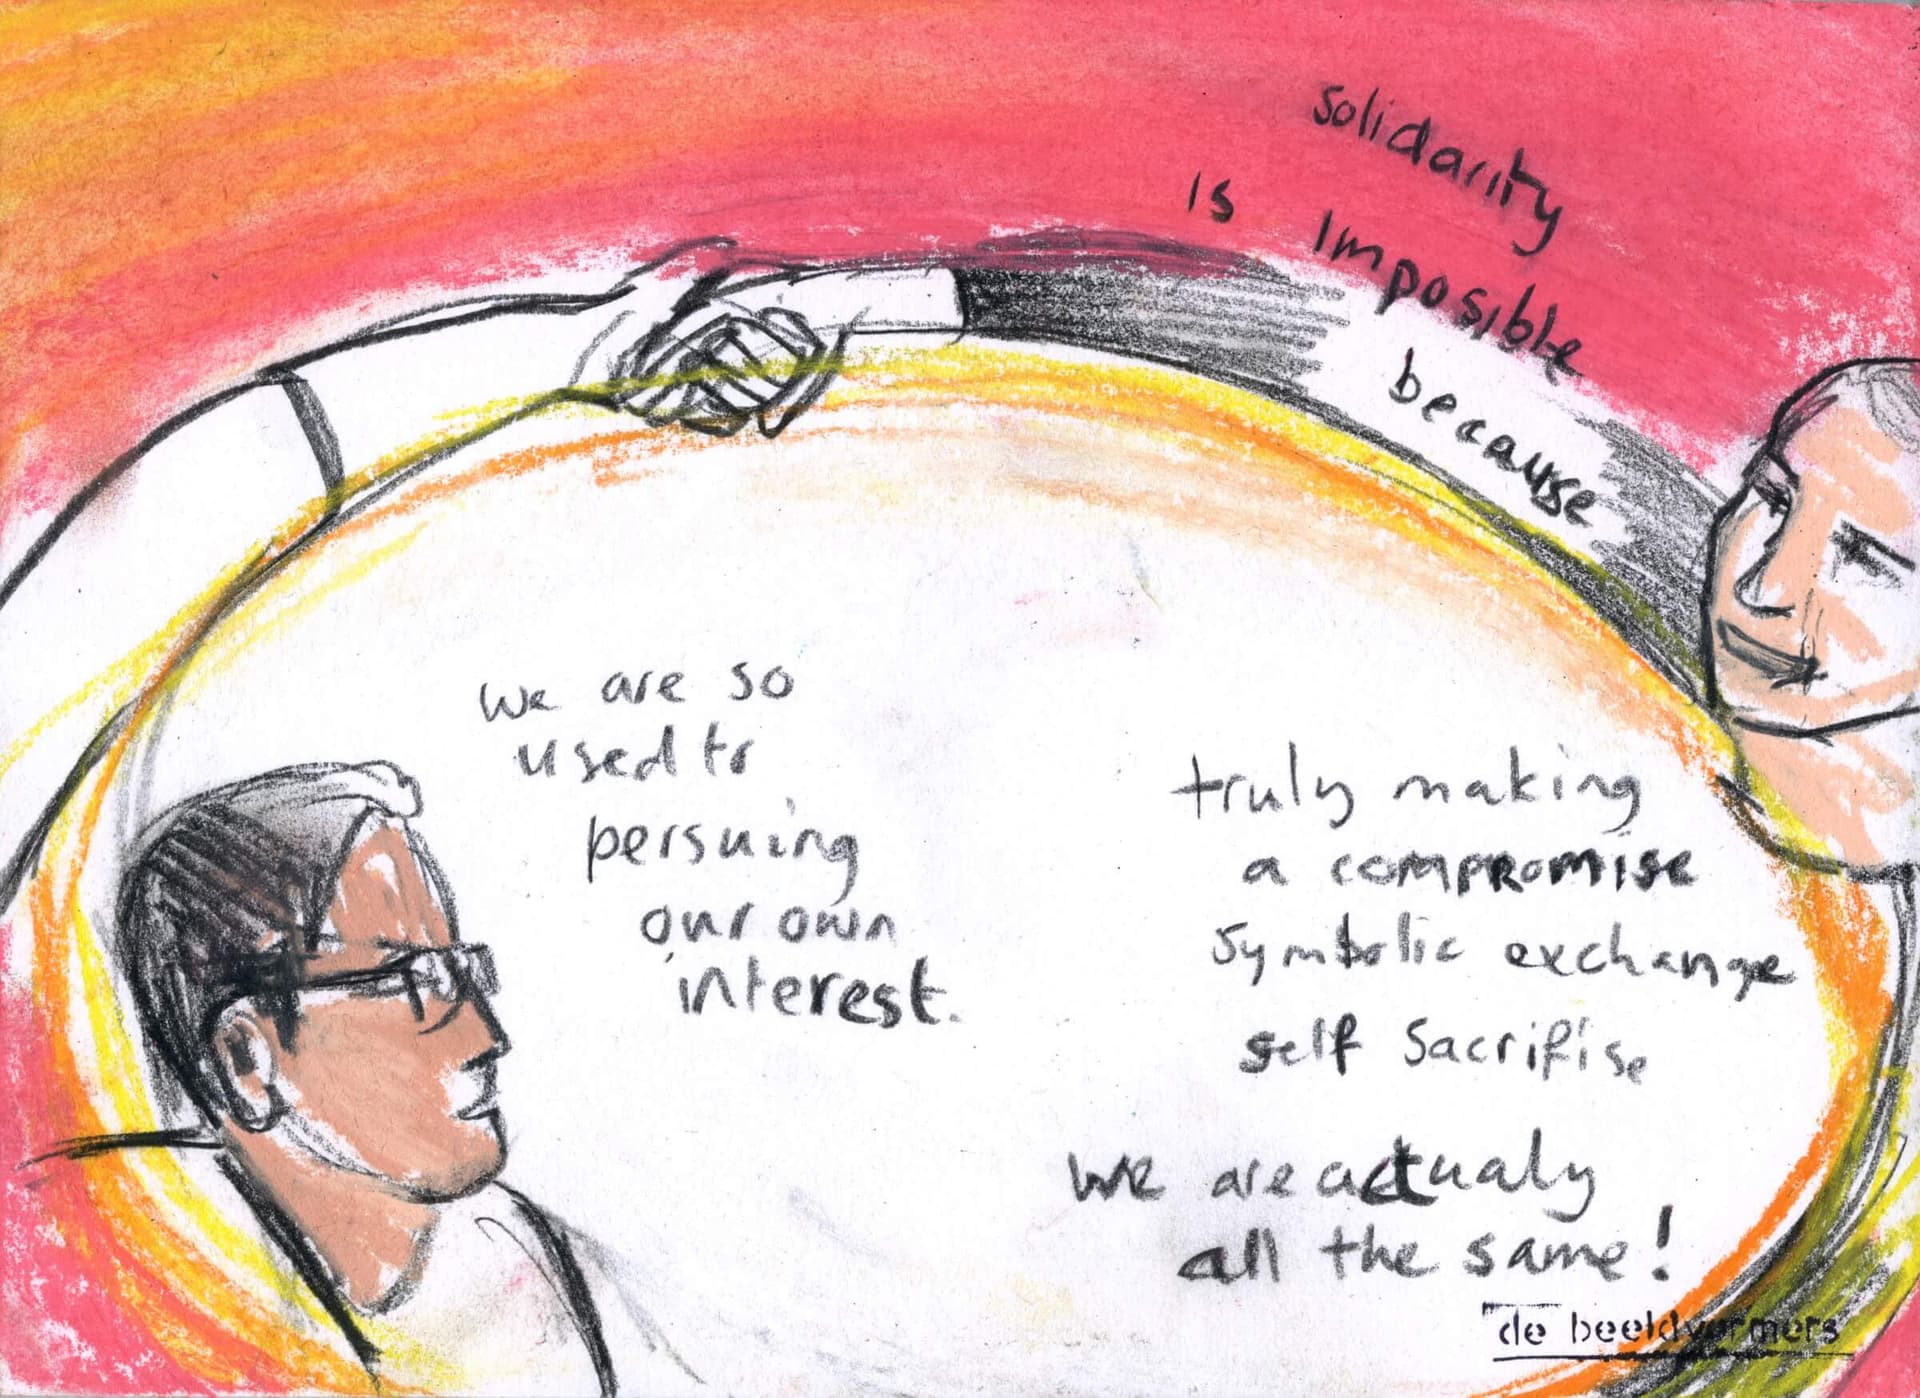 solidarity
is imposible
because
we are so
used to
persuing
our own
interest.
truly making
a compromise
symbolic exchange
self sacrifise
we are actualy
all the same!
de beeldvormers